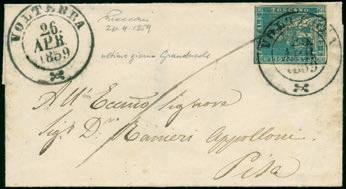 VOLTERRA
26
APR
1859
26-4-1859
ultimo giorno Granducale
All' Eccmo Signore
Sigr Dr Ranieri Appolloni
Pisa